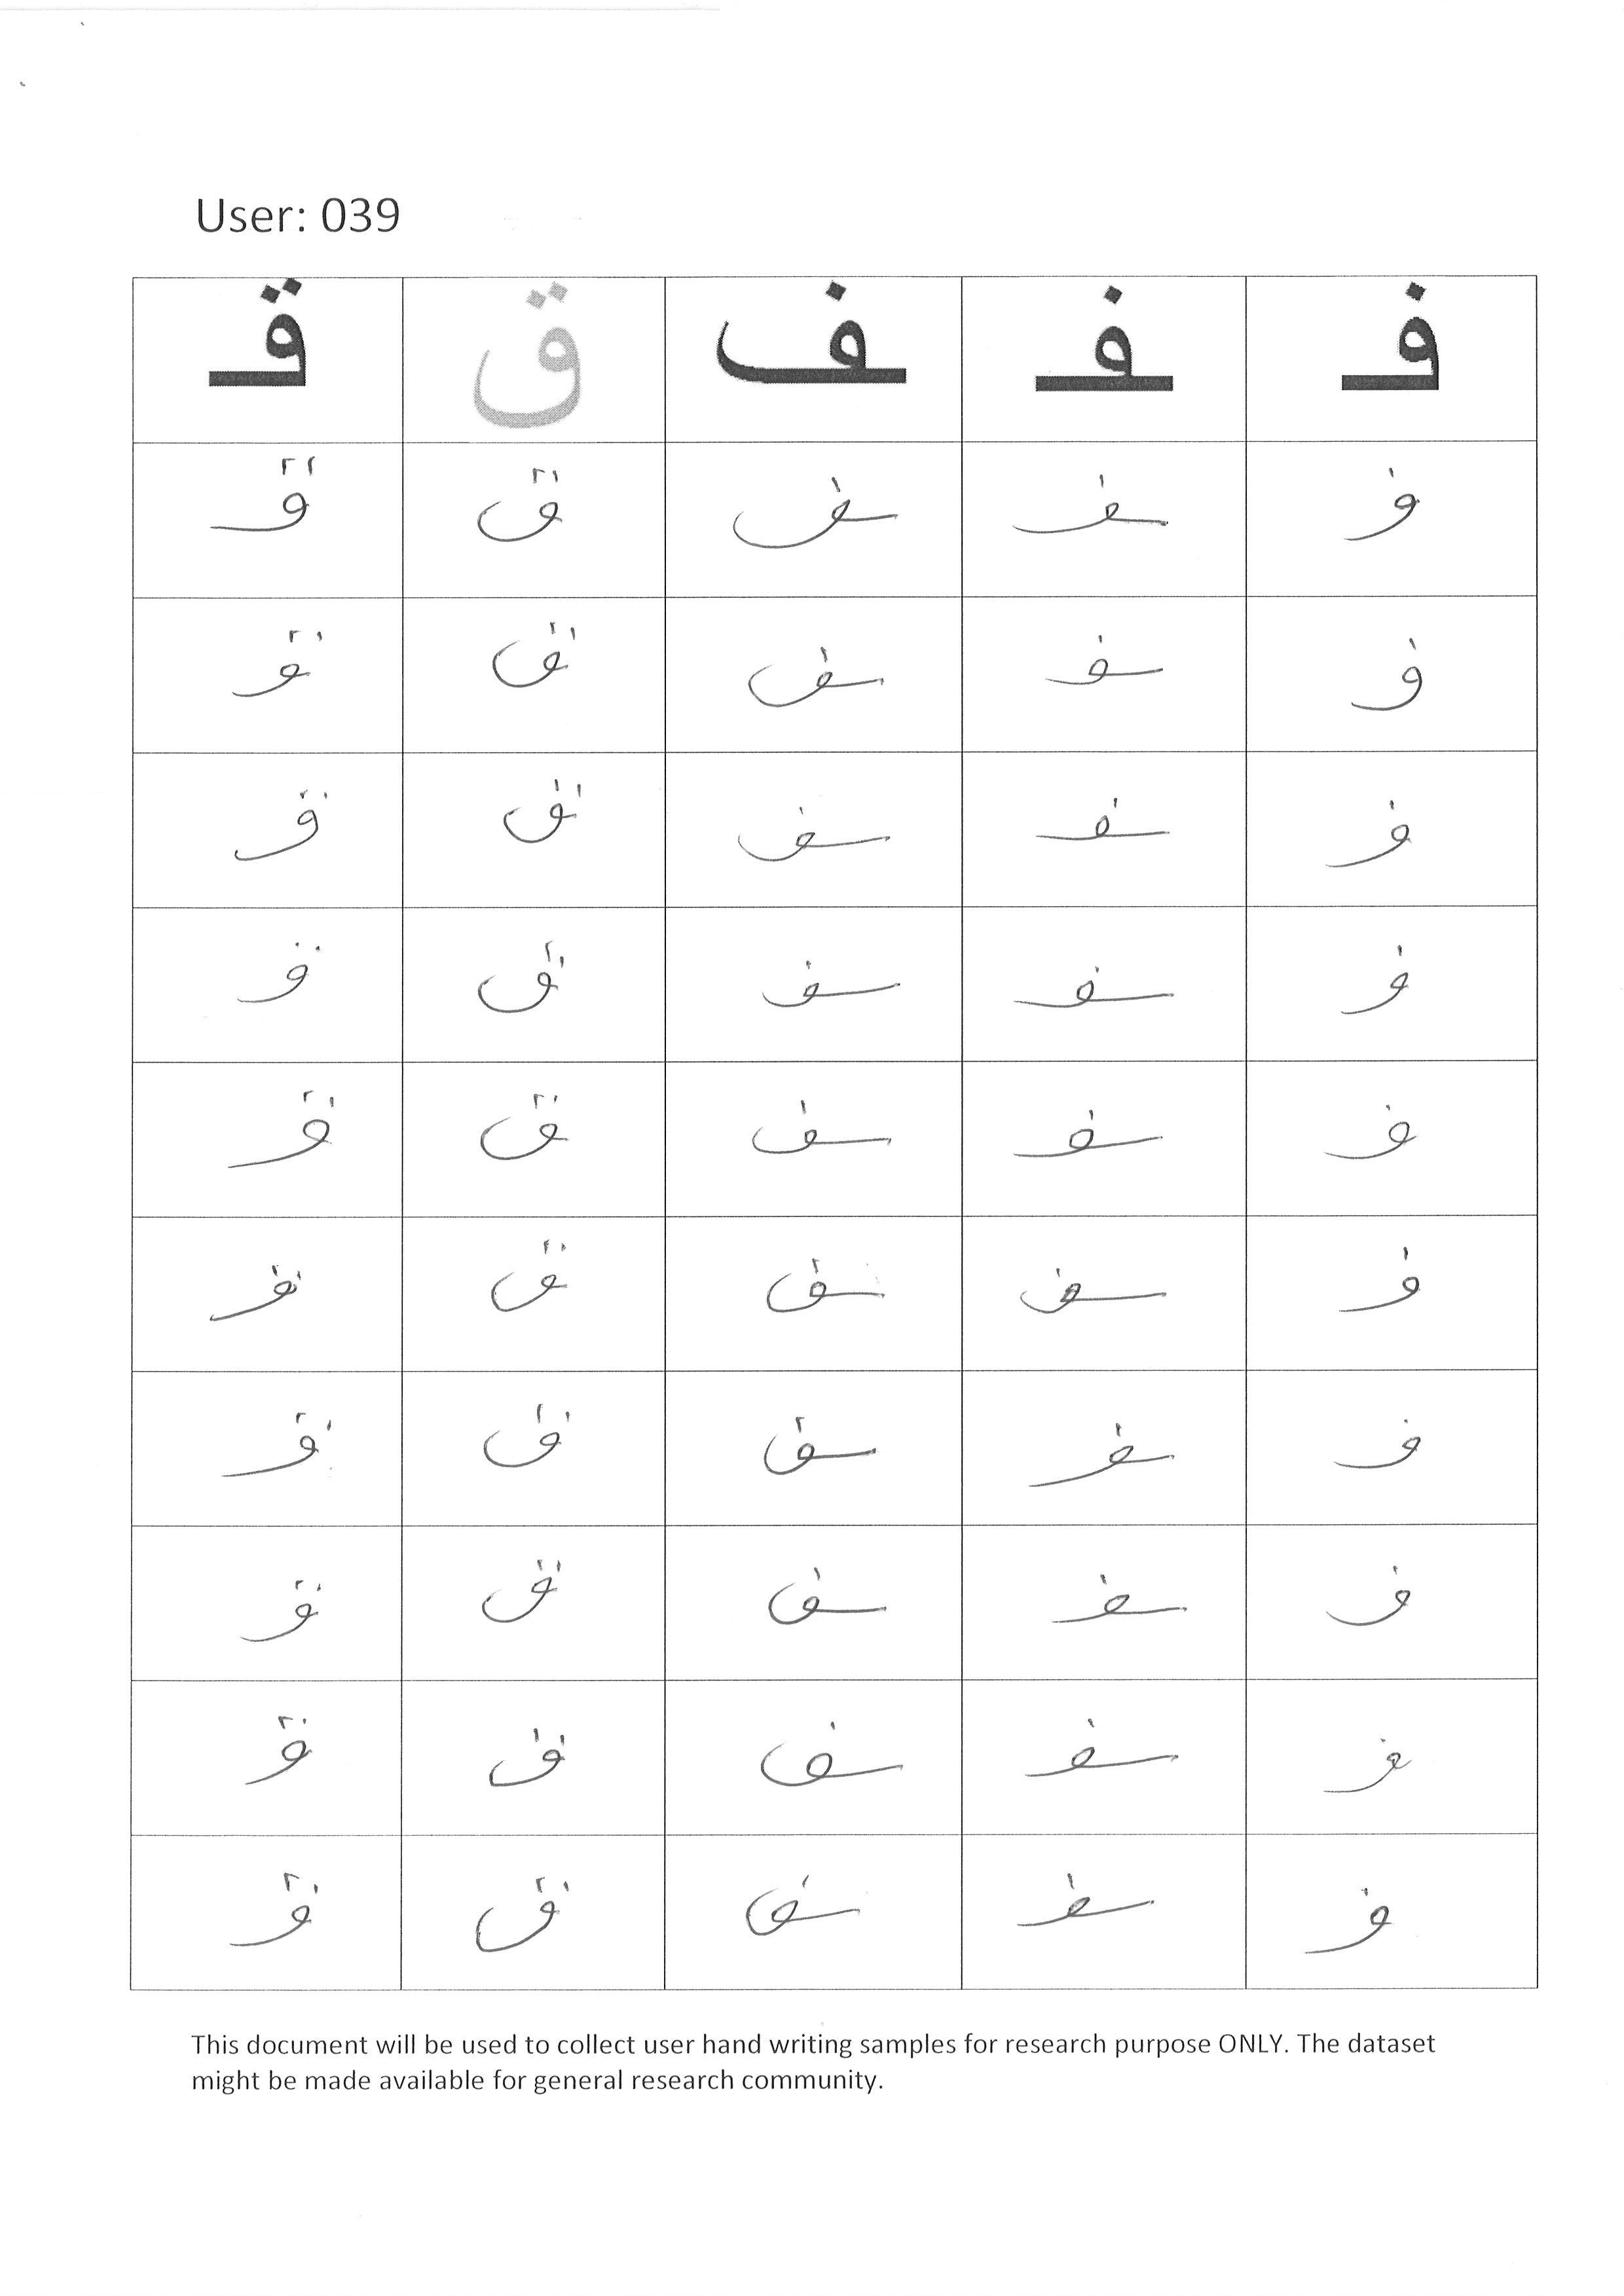 User: 039
فـ ـفـ ـف ق قـ
فـ ـفـ ـف ق قـ
فـ ـفـ ـف ق قـ
فـ ـفـ ـف ق قـ
فـ ـفـ ـف ق قـ
فـ ـفـ ـف ق قـ
فـ ـفـ ـف ق قـ
فـ ـفـ ـف ق قـ
فـ ـفـ ـف ق قـ
فـ ـفـ ـف ق قـ
فـ ـفـ ـف ق قـ
This document will be used to collect user hand writing samples for research purpose ONLY. The dataset
might be made available for general research community.